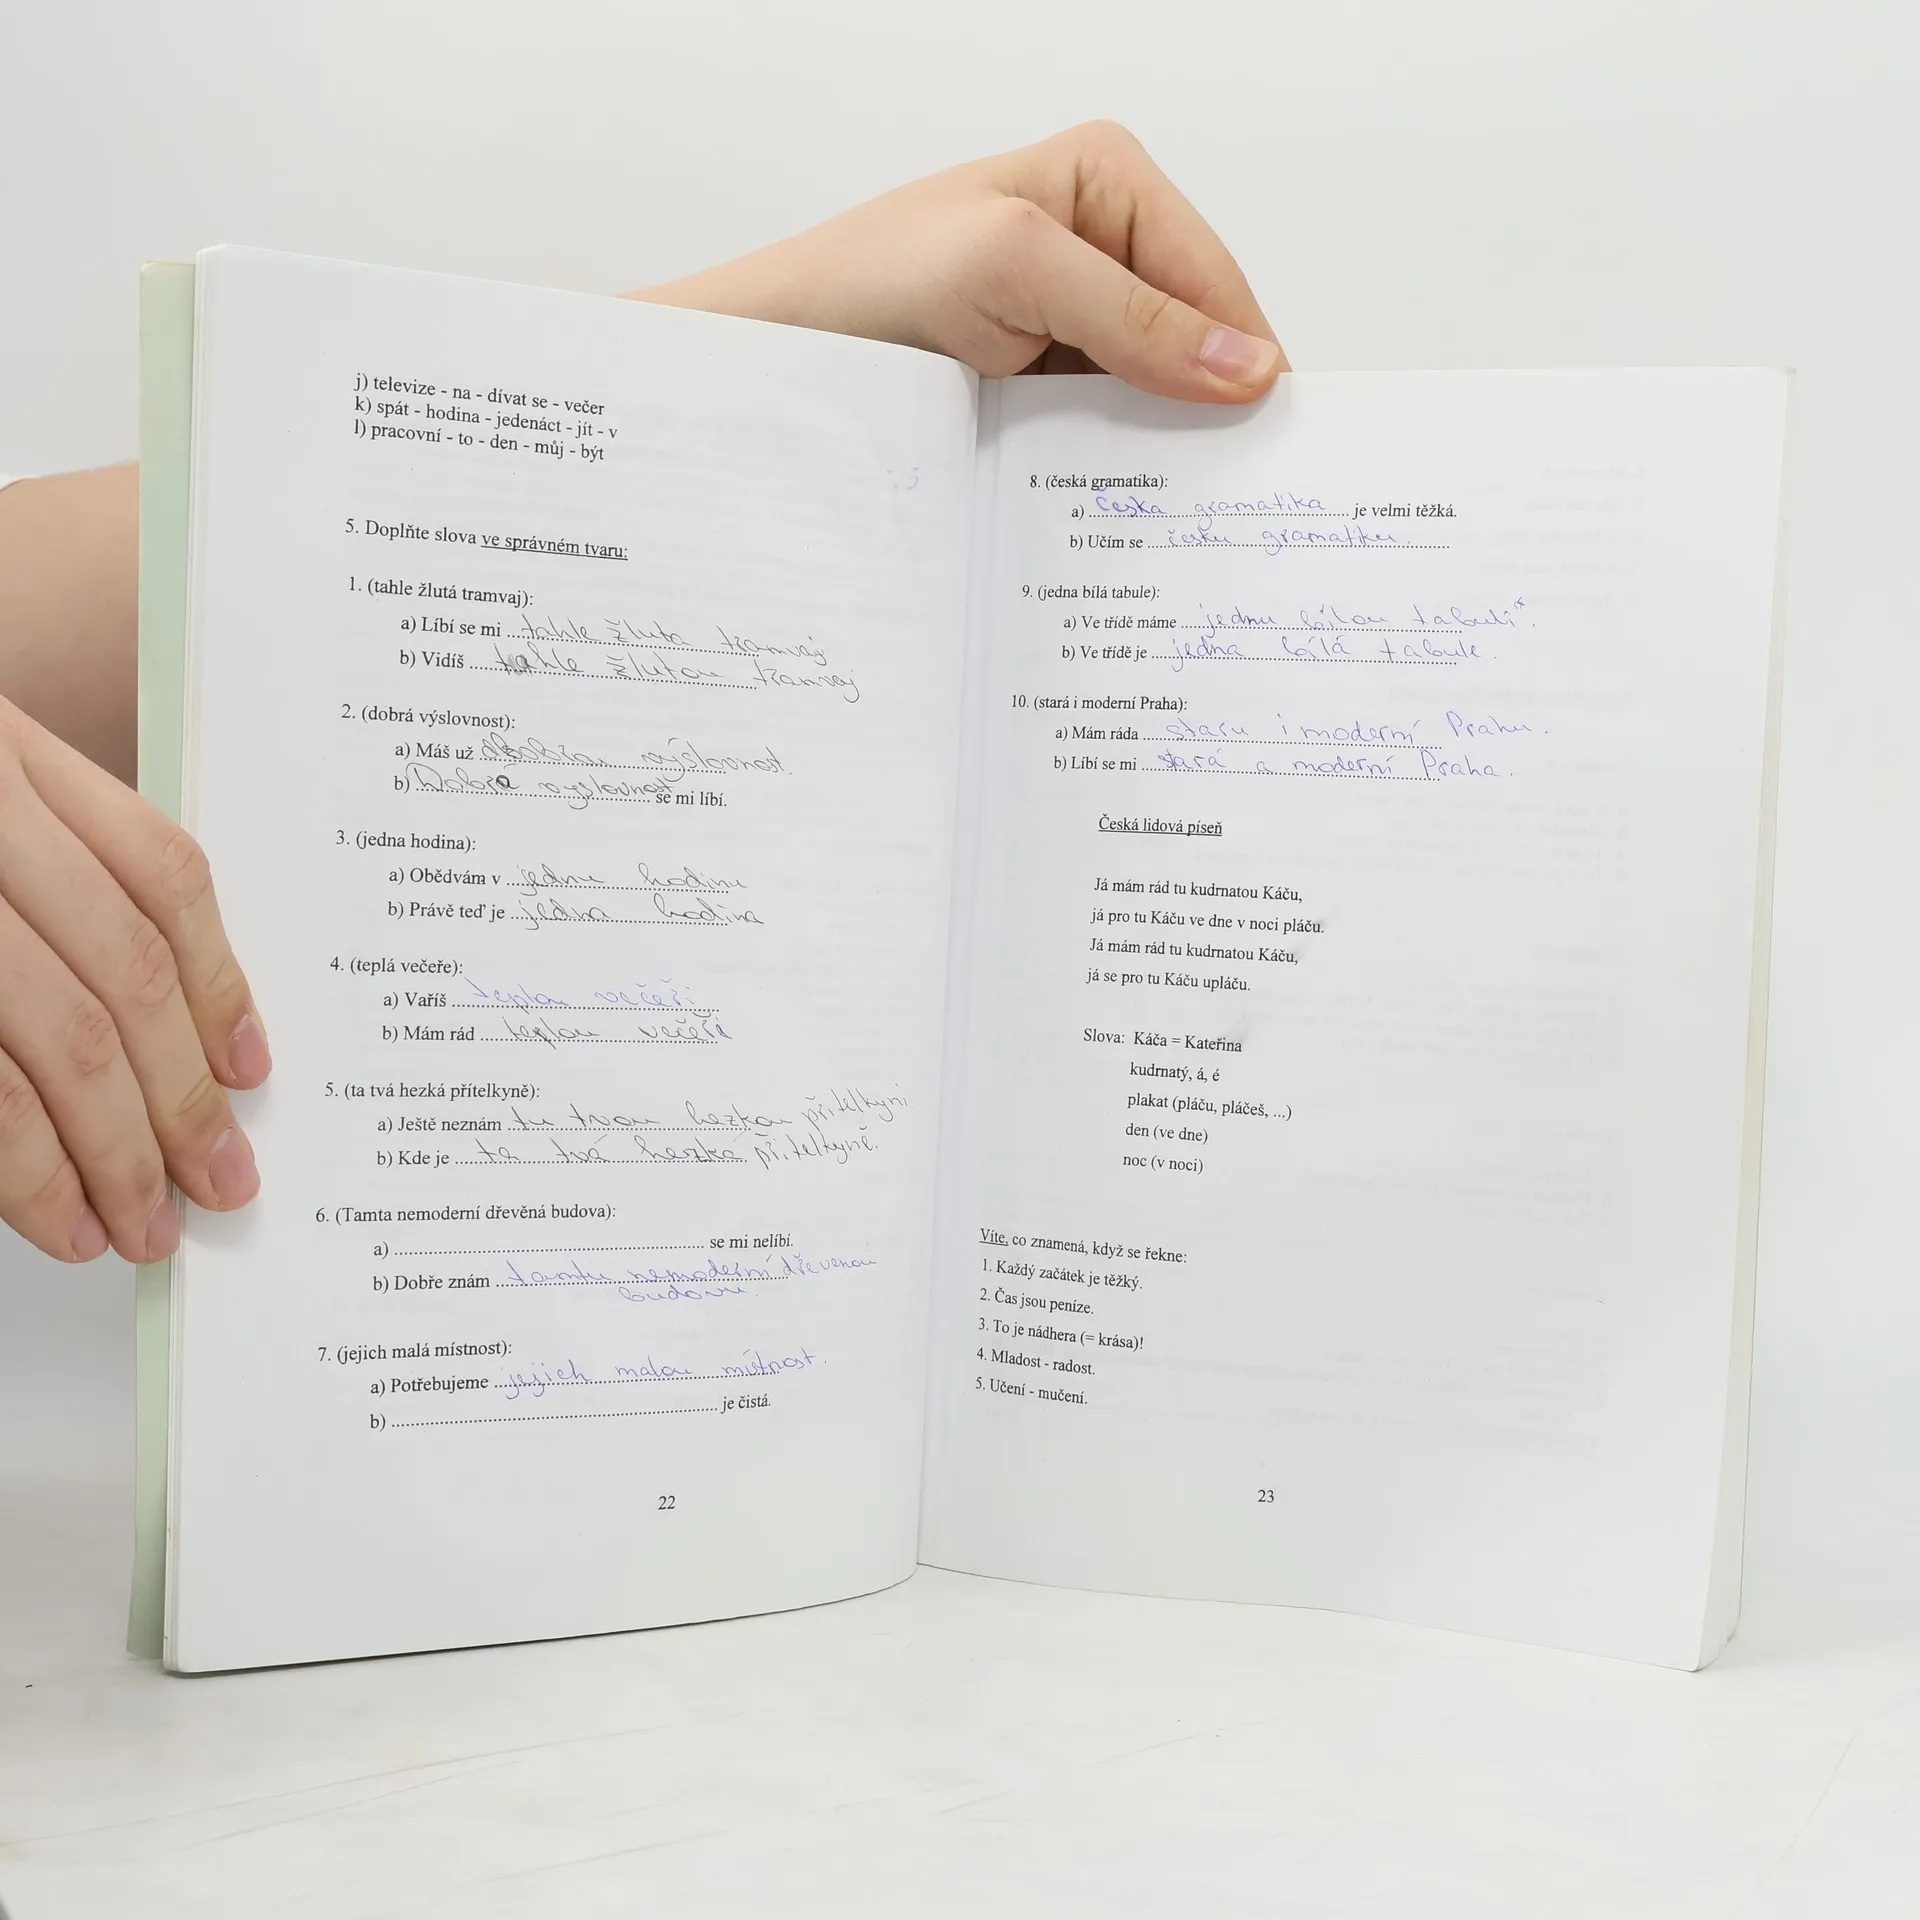 j) televize - na - dívat se - večer
k) spát - hodina - jedenáct - jít - v
l) pracovní - to - den - můj - být
5. Doplňte slova ve správném tvaru:
1. (tahle žlutá tramvaj):
a) Líbí se mi ... tahle žluta tramvaj
b) Vidíš ... tahle žlutou tramvaj
2. (dobrá výslovnost):
a) Máš už dobrou výslovnost.
b) Dobrá vyslovnost ... se mi líbí.
3. (jedna hodina):
a) Obědvám v ... jednu hodinu
b) Právě teď je ... jedna hodina
4. (teplá večeře):
a) Vaříš ... teplou večeři
b) Mám rád ... teplou večeři
5. (ta tvá hezká přítelkyně):
a) Ještě neznám ... tu tvou hezkou přitelkyni
b) Kde je ... ta tvá hezká přitelkyně.
6. (Tamta nemoderní dřevěná budova):
a) ... se mi nelíbí.
b) Dobře znám ... tamtu nemoderní dřevenou
budovu.
7. (jejich malá místnost):
a) Potřebujeme ... jejich malou místnost.
b) ... je čistá.
22
8. (česká gramatika):
a) ... Česka gramatika ... je velmi těžká.
b) Učím se ... česku gramatiku.
9. (jedna bílá tabule):
a) Ve třídě máme ... jednu bílou tabuli.
b) Ve třídě je ... jedna bílá tabule.
10. (stará i moderní Praha):
a) Mám ráda ... staru i moderní Prahu.
b) Líbí se mi ... stará a moderní Praha.
Česká lidová píseň
Já mám rád tu kudrnatou Káču,
já pro tu Káču ve dne v noci pláču.
Já mám rád tu kudrnatou Káču,
já se pro tu Káču upláču.
Slova: Káča = Kateřina
kudrnatý, á, é
plakat (pláču, pláčeš, ...)
den (ve dne)
noc (v noci)
Víte, co znamená, když se řekne:
1. Každý začátek je těžký.
2. Čas jsou peníze.
3. To je nádhera (= krása)!
4. Mladost - radost.
5. Učení - mučení.
23